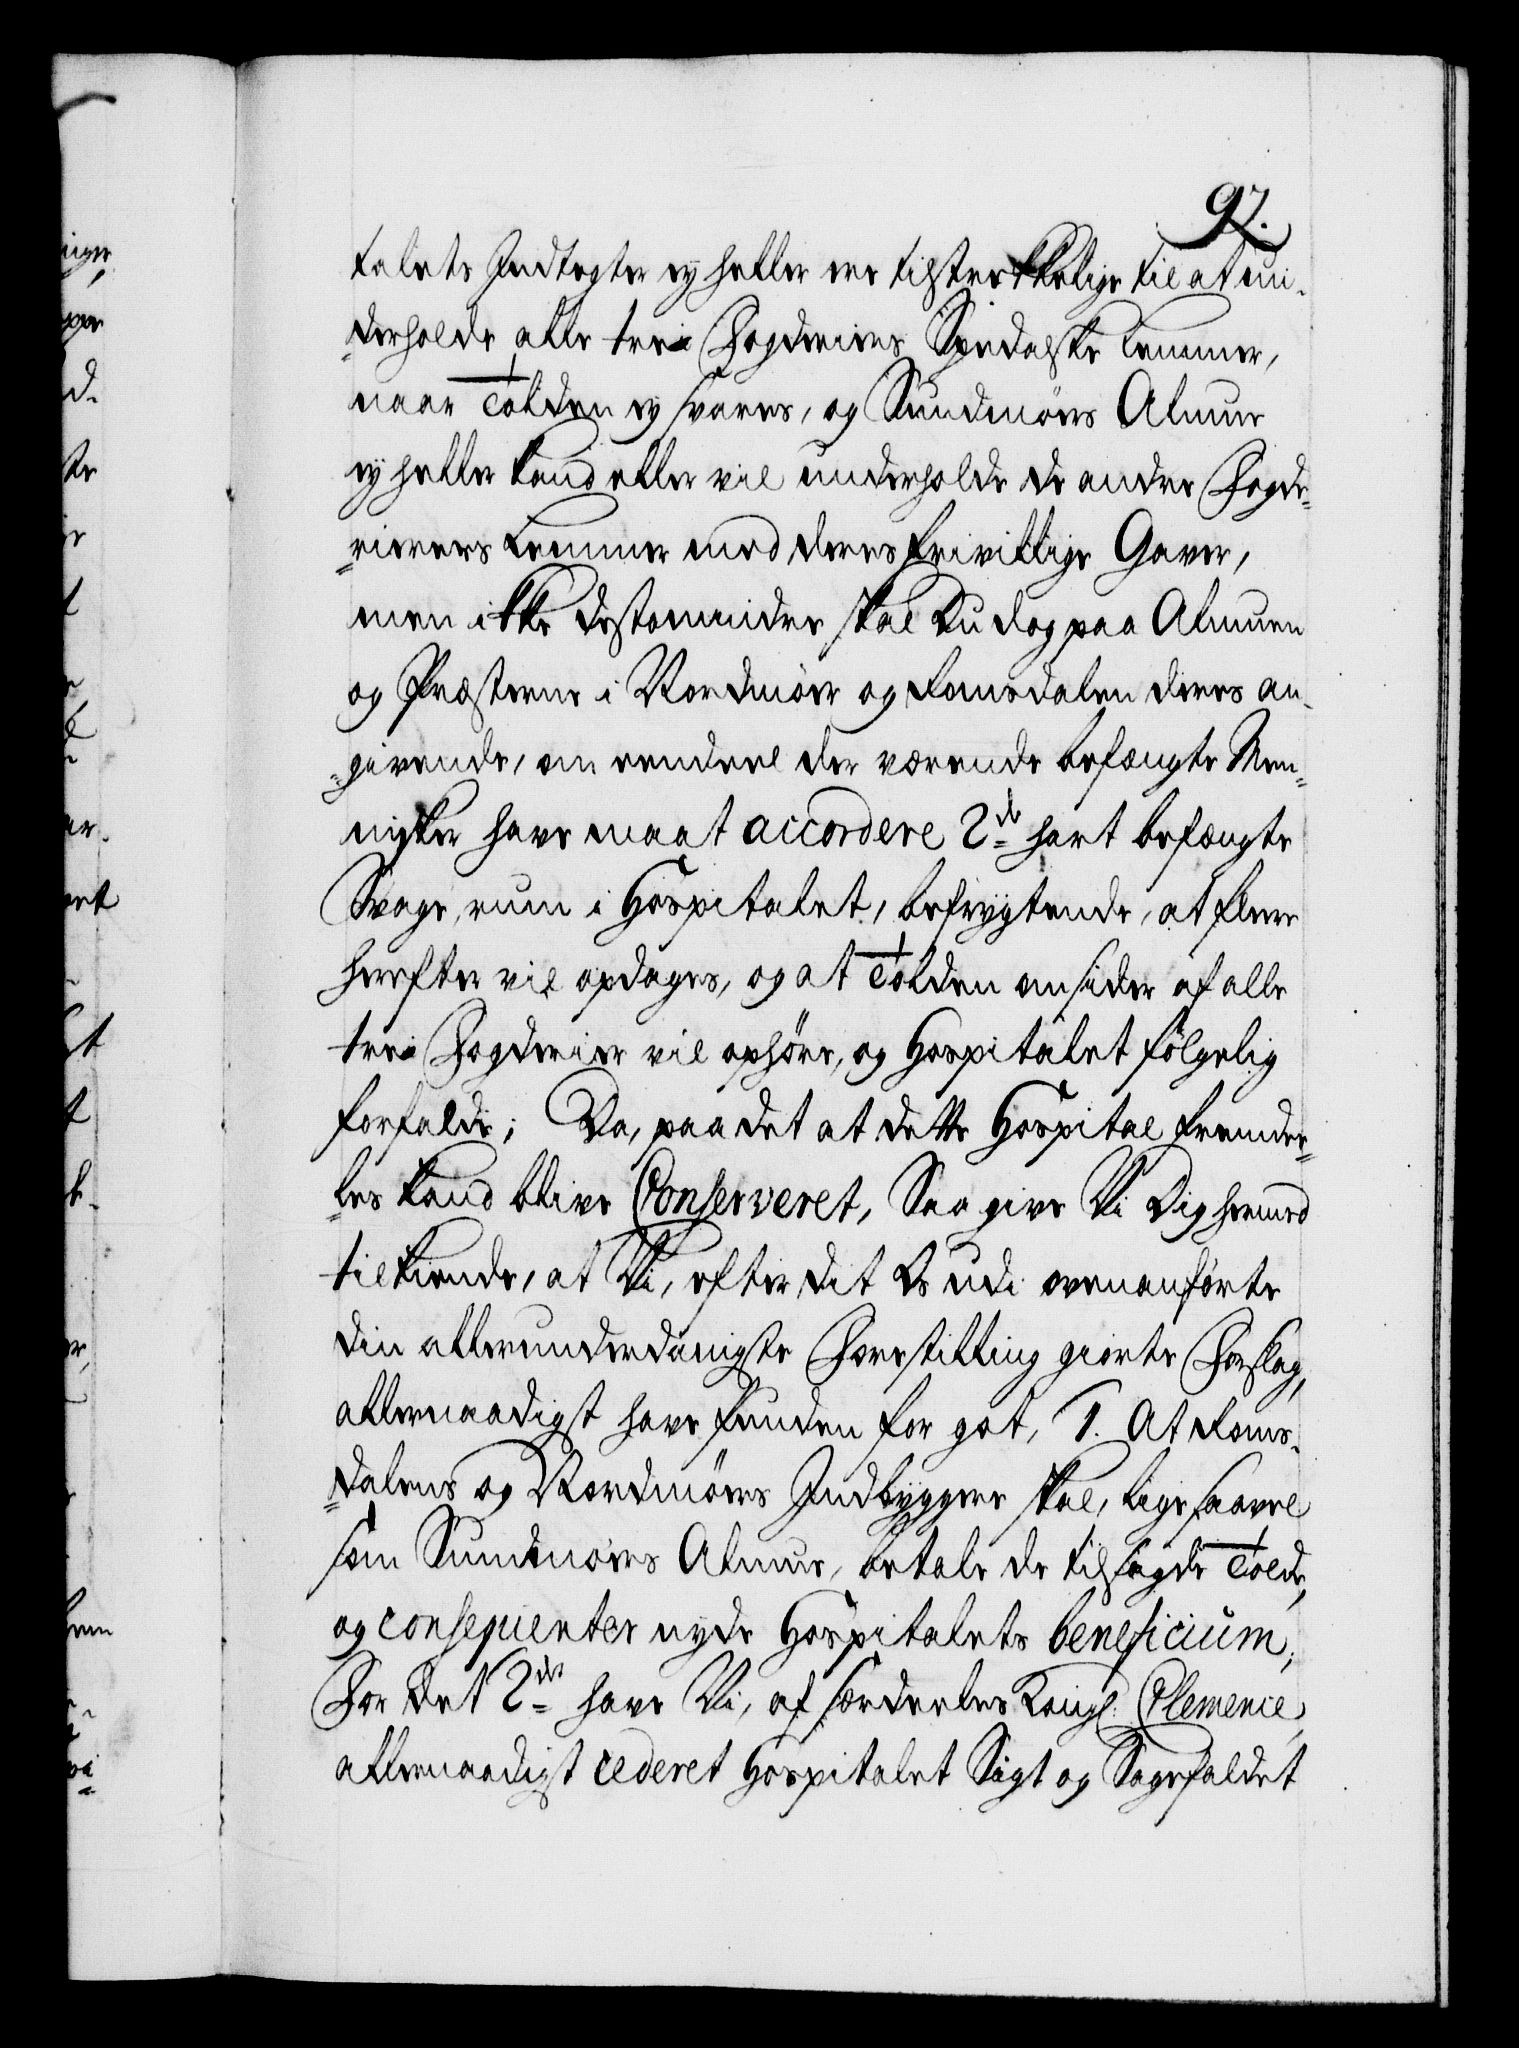 97.
talets Indtegter ey heller ere tilstrekkelige til at un-
derholde alle trei Fogderiers Spedalske Lemmer,
naar Tolden ey svares, og Sundmöers Almue
ey heller kand eller vil underholde de andre Fogde-
rierers Lemmer med deres frivillige Gaver,
men ikke destomindre skal Du dog paa Almuen
og Præsterne i Nordmöer og Romsdalen deres an-
givende, om eendeel der værende befængte Men-
nisker have maat accordere 2de hart befængte
Svage, rum i Hospitalet, befrygtende, at fleere
herefter vil opdages, og at Tolden omsider af alle
trei Fogderier vil ophöre, og Hospitalet fölgelig
forfalde; Da, paa det at dette Hospital fremde-
les kand blive Conserveret, Saa give Vi Dig hermed
tilkiende, at Vi, efter dit Os udi ovenanförte
din allerunderdanigste Forestilling giorte Forslag,
allernaadigst have funden for got, 1. At Roms-
dalens og Nordmöers Indbyggere skal, lige saavel
som Sundmöers Almue, betale de tilsagde Tolde,
og consequenter nyde Hospitalets beneficium,
For det 2det have Vi, af særdeeles Kongl. Clemence,
allernaadigst cederet Hospitalet Sigt og Sagefaldet